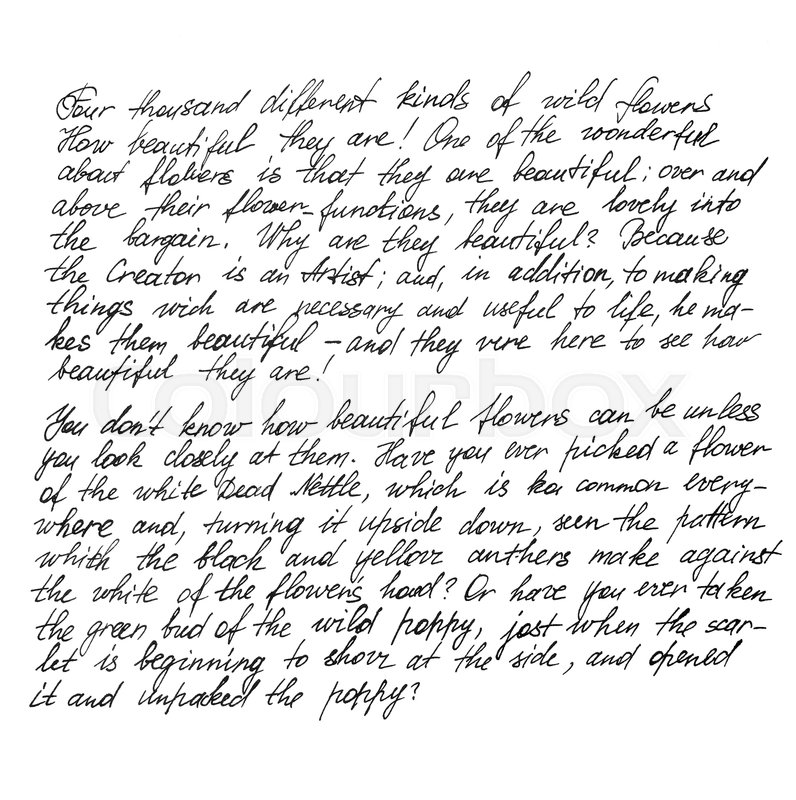 Four thousand different kinds of wild flowers
How beautiful they are! One of the wonderful
about flowers is that they are beautiful; over and
above their flower-functions, they are lovely into
the bargain. Why are they beautiful? Because
the Creator is an Artist; and, in addition, to making
things wich are necessary and useful to life, he ma-
kes them beautiful – and they vere here to see how
beautiful they are!
You don't know how beautiful flowers can be unless
you look closely at them. Have you ever picked a flower
of the white Dead Nettle, which is common every-
where and, turning it upside down, seen the pattern
whith the black and yellow anthers make against
the white of the flower's hood? Or have you ever taken
the green bud of the wild poppy, jost when the scar-
let is beginning to show at the side, and opened
it and unpacked the poppy?
colourbox